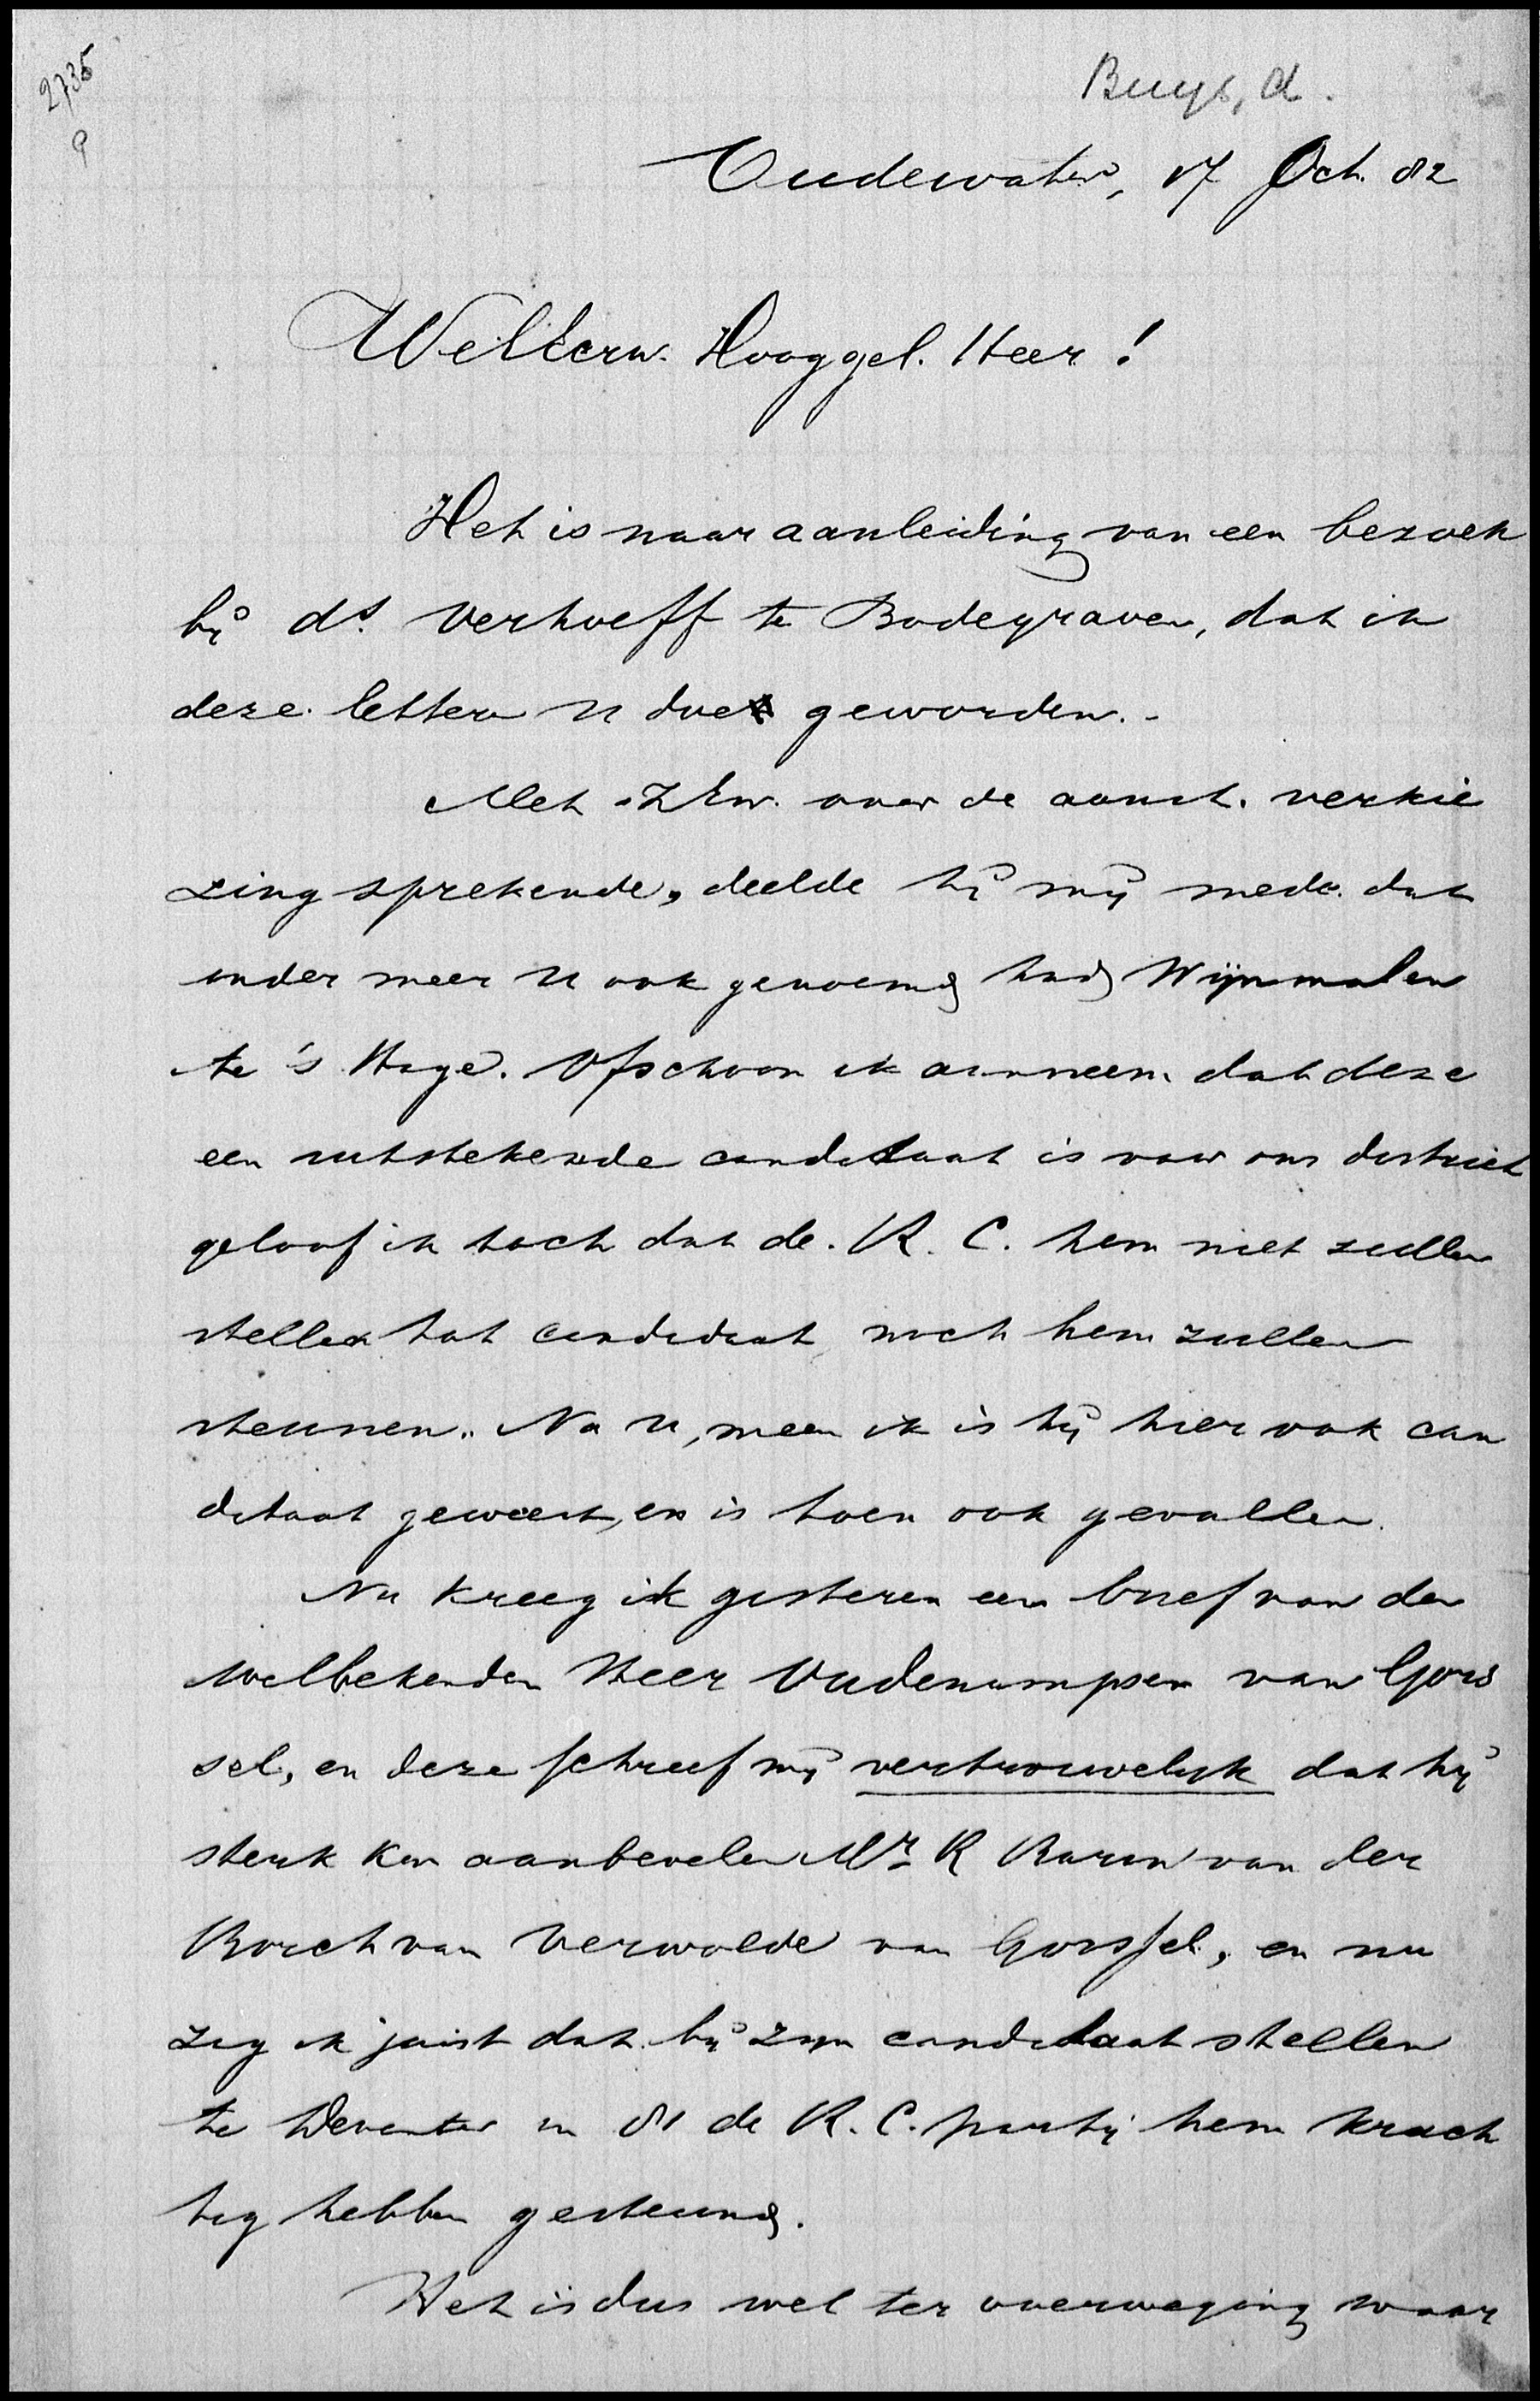 2735
9
Buys, A.
Oudewater, 17 Oct. 82
WelEerw. Hooggel. Heer!
Het is naar aanleiding van een bezoek
bij ds. Verhoeff te Bodegraven, dat ik
deze letteren U doe geworden. -
Met ZEw. over de aanst. verkie
zing sprekende, deelde hij mij mede dat
onder meer U ook genoemd had Wijnmalen
te 's Hage. Ofschoon ik aanneem dat deze
een uitstekende candidaat is voor ons district
geloof ik toch dat de R. C. hem niet zullen
stellen tot candidaat noch hem zullen
steunen. Na U, meen ik is hij hier ook can
didaat geweest, en is toen ook gevallen.
Nu kreeg ik gisteren een brief van den
welbekenden Heer Oudenampsen van Gors
sel, en deze schreef mij vertrouwelijk dat hij
sterk kon aanbevelen Mr. R Baron van der
Borch van Verwolde van Gorssel, en nu
zeg ik juist dat bij zijn candidaat stellen
te Deventer in 81 de R. C. partij hem krach
tig hebben gesteund.
Het is dus wel ter overweging waar